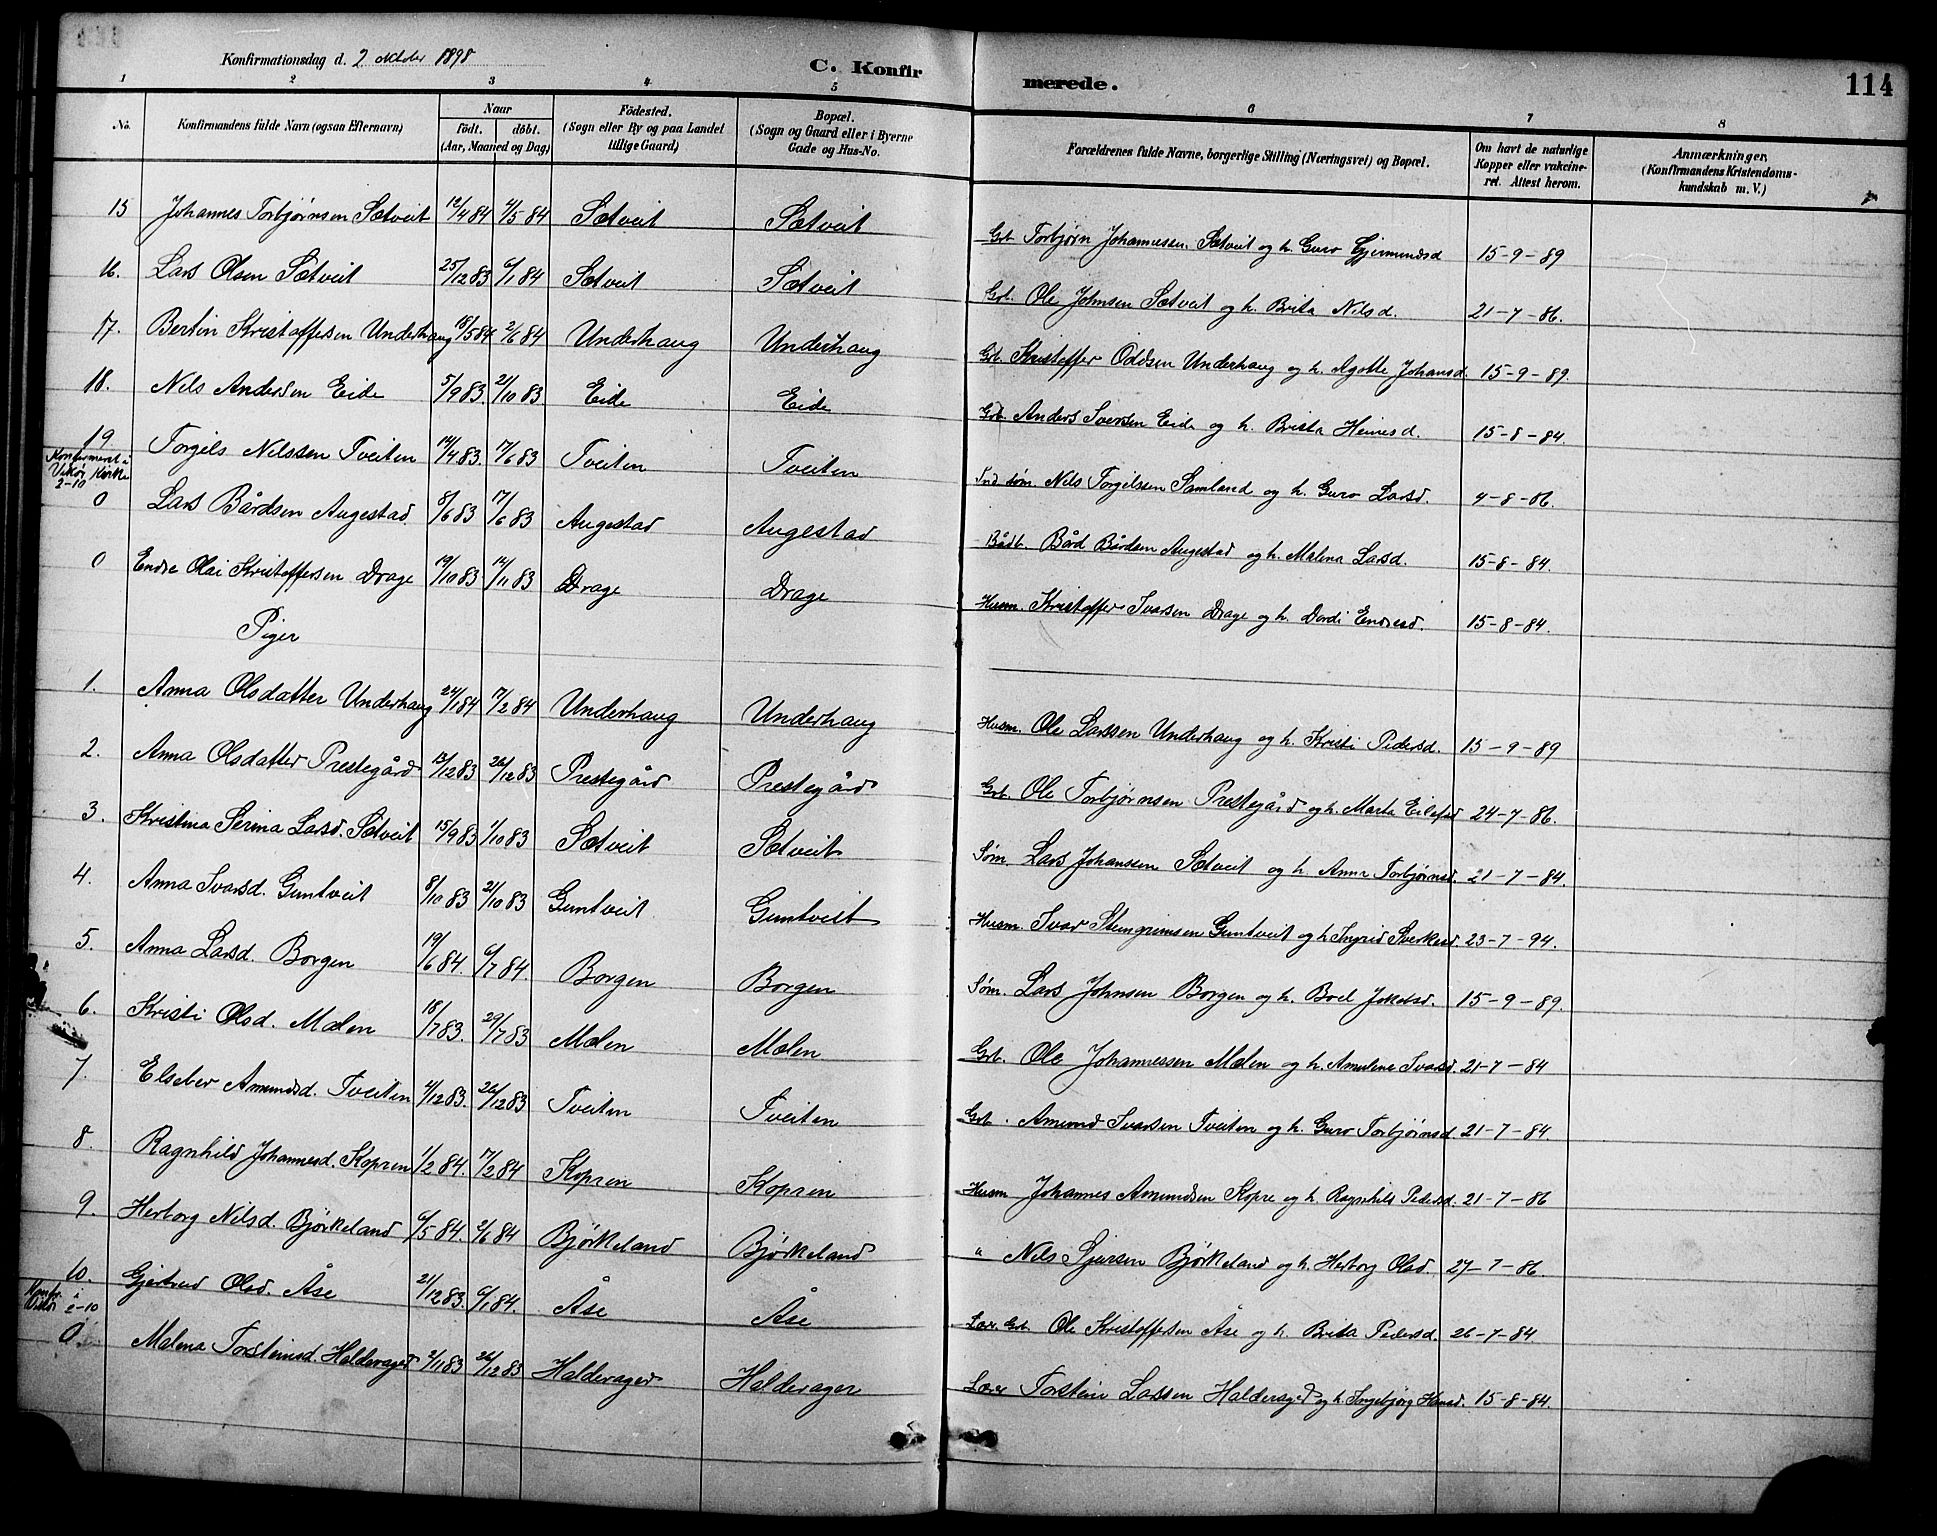 Konfirmationsdag d. 2 oktober 1898
C. Konfirmerede.
114
1 2 3 4 5 6 7 8
No. Konfirmandens fulde Navn (ogsaa Efternavn) Naar födt. döbt. (Aar, Maaned og Dag) Födested. (Sogn eller By og paa Landet tillige Gaard) Bopæl. (Sogn og Gaard eller i Byerne Gade og Hus-No. Forældrenes fulde Navne, borgerlige Stilling (Næringsvei) og Bopæl. Om havt de naturlige Kopper eller vakcineret. Attest herom. Anmærkninger. (Konfirmandens Kristendomskundskab m. V.)
15 Johannes Torbjørnsen Sætveit 12/4 84 4/5 84 Sætveit Sætveit Grb. Torbjørn Johannessen Sætveit og h. Guro Gjermundsd 15-9-89
16. Lars Olsen Sætveit 25/12 83 6/1 84 Sætveit Sætveit Grb. Ole Johnsen Sætveit og h. Brita Nilsd. 21-7-86.
17. Bertin Kristoffersen Underhaug 18/5 84 2/6 84 Underhaug Underhaug Grb. Kristoffer Oddsen Underhaug og h. Agotte Johansd. 15-9-89.
18. Nils Andersen Eide 5/9 83 21/10 83 Eide Eide Grb. Anders Iversen Eide og h. Brita Heinesd. 15-8-84
19 Torgils Nilssen Tveiten 14/4 83. 17/6 83 Tveiten Tveiten Ind. søm. Nils Torgilssen Samland og h. Guro Larsd. 4-8-86.
Konfirmeret i Vikør Kirke 2-10
0 Lars Bårdsen Augestad 8/6 83 17/6 83 Augestad Augestad Bådb. Bård Bårdsen Augestad og h. Malena Larsd. 15-8-84.
0 Endre Olai Kristoffersen Drage 19/10 83 14/11 83 Drage Drage Husm. Kristoffer Ivarsen Drage og h. Dordi Endresd. 15-8-84.
Piger
1. Anna Olsdatter Underhaug 24/1 84 17/2 84 Underhaug Underhaug Husm. Ole Larssen Underhaug og h. Kristi Pedersd. 15-9-89
2. Anna Olsdatter Prestegård 13/12 83 26/12 83 Prestegård Prestegård Grb. Ole Torbjørnsen Prestegård og h. Marta Eilefsd 24-7-86.
3. Kristina Serina Larsd. Sætveit 15/9 83 1/10 83 Sætveit Sætveit Søm. Lars Johansen Sætveit og h. Anna Torbjørnsd. 21-7-84.
4. Anna Ivarsd. Guntveit 8/10 83 21/10 83 Guntveit Guntveit Husm. Ivar Steingrimsen Guntveit og h. Ingrid Sverkesd. 23-7-94.
5. Anna Larsd. Borgen 19/6 84. 6/7 84. Borgen Borgen Søm. Lars Johnsen Borgen og h. Boel 15-9-89.
6. Kristi Olsd. Mælen 18/7 83. 29/7 83 Mælen Mælen Grb. Ole Johannessen Mælen og h. Amulene Ivarsd. 21-7-84
7. Elseber Amundsd. Tveiten 4/12 83. 26/12 83 Tveiten Tveiten Grb. Amund Ivarsen Tveiten og h. Guro Torbjørnsd 21-7-84
8. Ragnhild Johannesd. Kopren 1/2 84. 17/2 84 Kopren Kopren Husm Johannes Amundsen Kopre og h. Ragnhild Pedersd. 21-7-86
9. Herborg Nilsd. Bjørkeland 6/5 84. 2/6 84 Bjørkeland Bjørkeland " Nils Sjursen Bjørkeland og h. Herborg Olsd. 27-7-86.
10. Gjertrud Olsd. Åse 21/12 83. 6/1 84. Åse Åse Lær. Grb. Ole Kristoffersen Åse og h. Brita Pedersd. 26-7-84
Konfr. i Vikør 2-10
0 Malena Torsteinsd. Halderager 2/11 83 26/12 83 Halderager Halderager Lærer Torstein Larssen Halderager og h. Ingebjørg Hansd. 15-8-84.